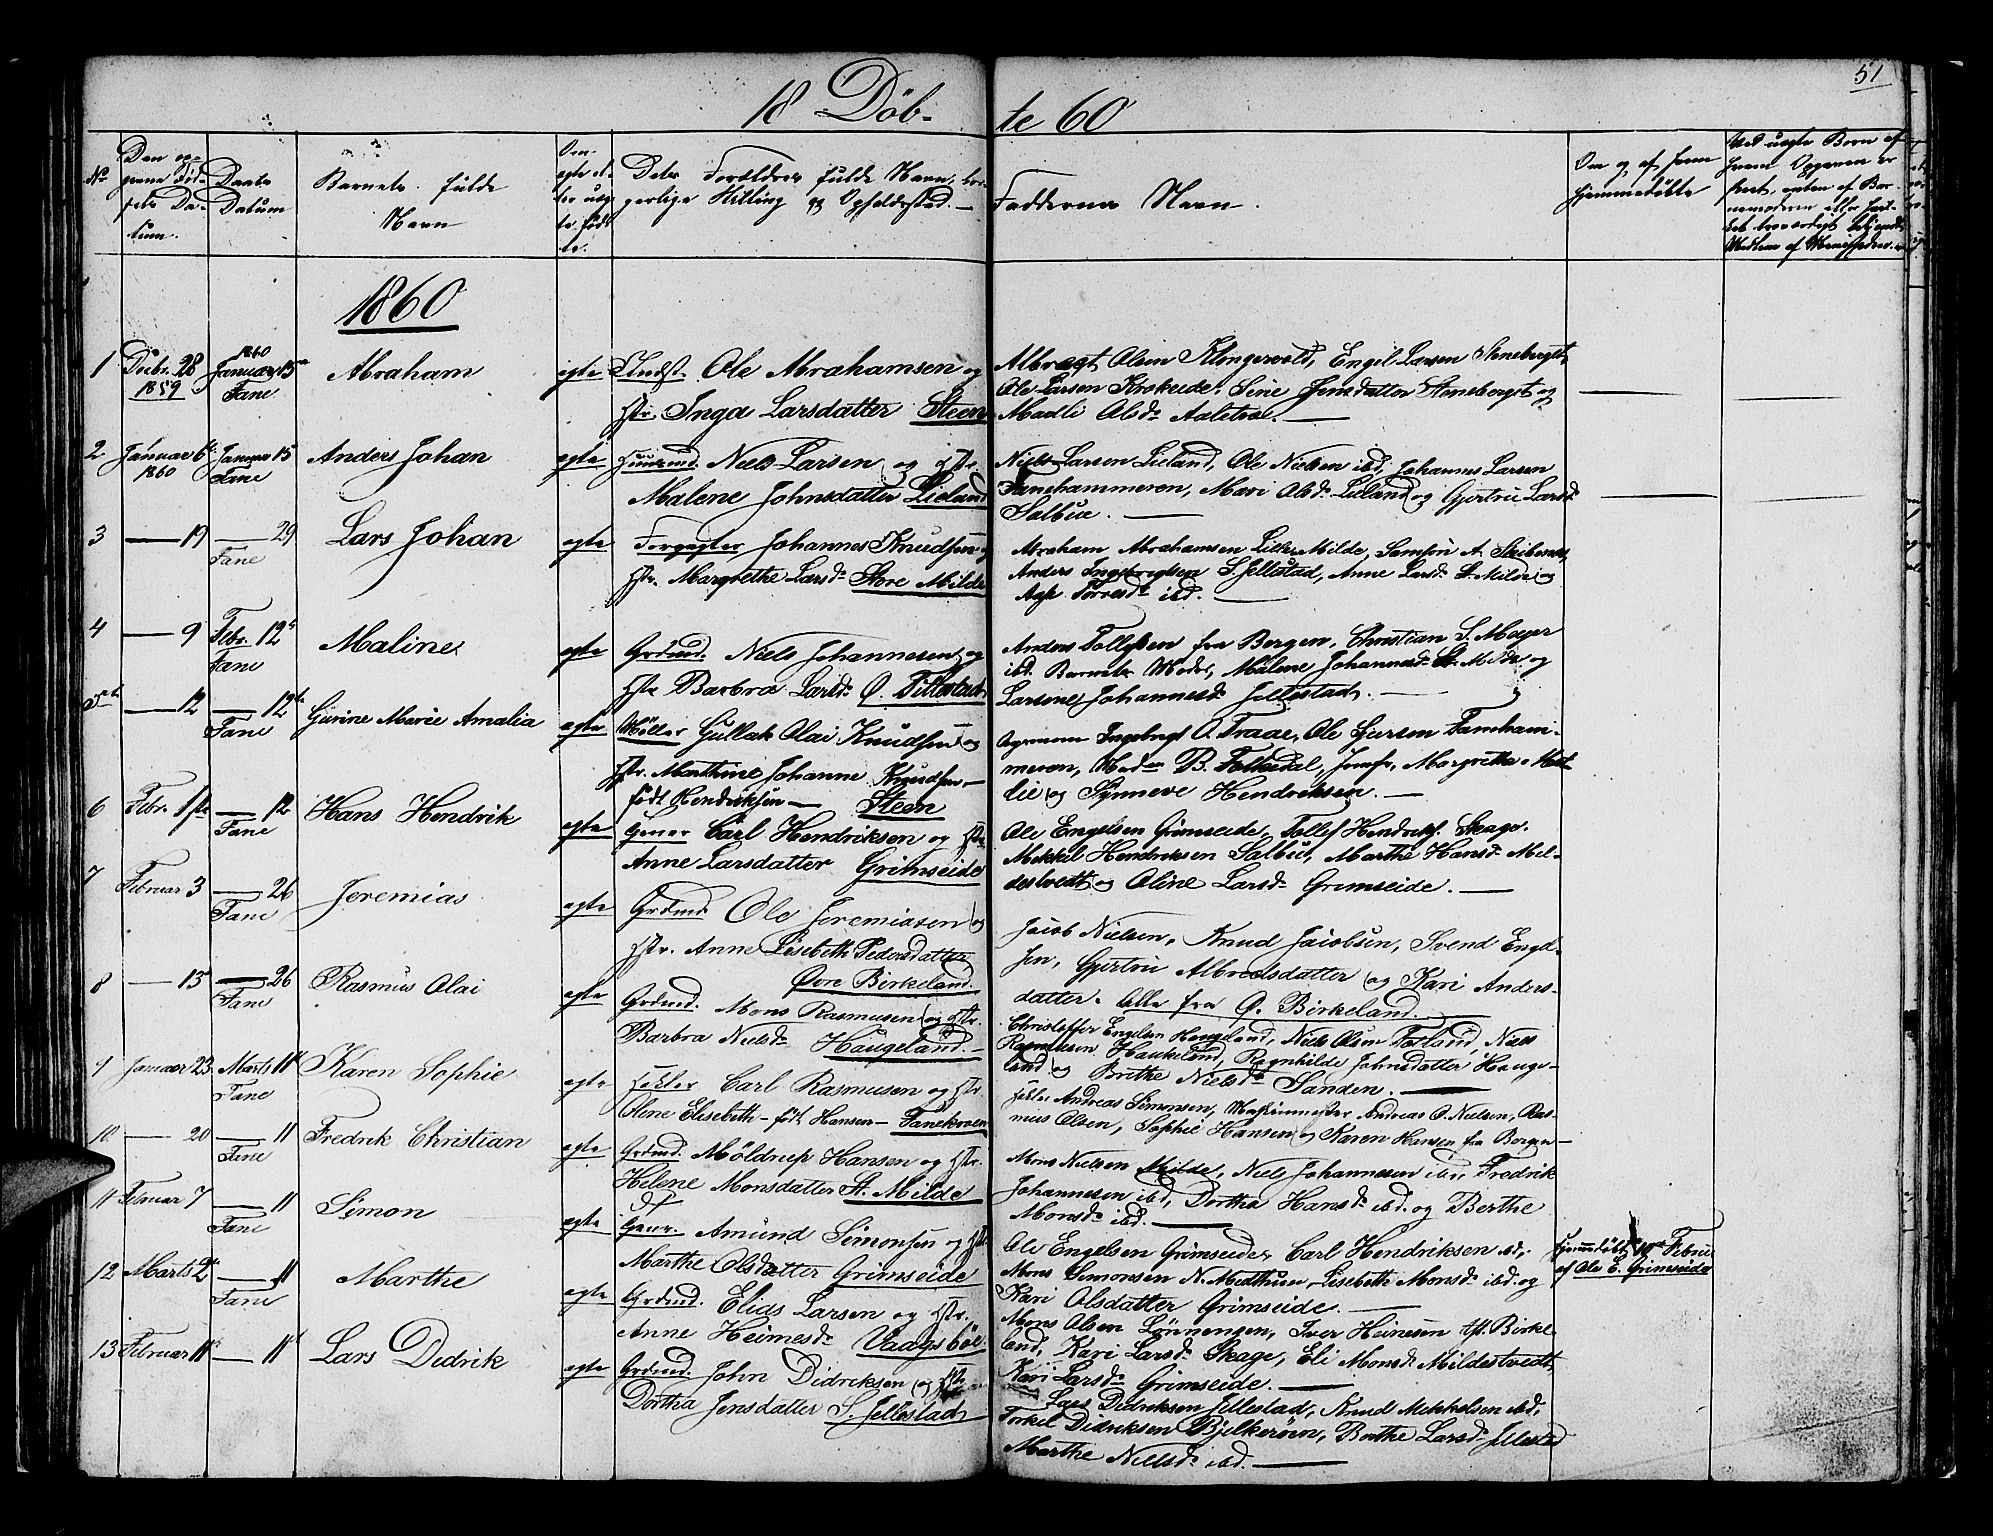 51
18 Døb- te 60
No
Den op-
givne Fød-
sels Da-
tum.
Daabs
Datum
Barnets fulde
Navn
Om
egte el-
ler ueg-
te født
Forældres fulde Navn, bor-
gerlige Stilling og Opholdssted.
Faddernes Navn.
Om og af hvem
hjemmedøbte
Ved uegte Børn af
hvem Opgaven er
skeet, enten af Bar-
nemoderen eller
1860
1 Decbr. 28 1859 1860 Januar 15 Fane Abraham egte Indst. Ole Abrahamsen og
Hstr. Inga Larsdatter Steen
Albregt Olsen Klongervold, Engel Larsen Stenebergst,
Ole Larsen Krokeide, Sine Jensdatter Stenebergst og
Madli Olsdr
2 Januar 6 1860 Januar 15 Fane Anders Johan egte Huusmd. Niels Larsen og Hstr.
Malene Johnsdatter Lieland
Niels Larsen Lieland, Ole Nielsen ibd, Johannes Larsen
Fanehammeren, Mari Olsdr Lieland og Gjertrue Larsdr
Salbue.
3 — 19 — 29 Fane Lars Johan egte Forpagter Johannes Knudsen
Hstr. Margrethe Larsdr Store Milde
Abraham Abrahamsen Lille Milde, Samson A.
Anders Ingebrigtsen S. Jellestad, Anne Larsdr S. Milde og
Torresdr ibd.
4 — 9 Febr. 12 Fane Maline egte Grdmd. Niels Johannesen og
Hstr Barbra Larsdr Ø. Tittlestad
Anders Tollefsen fra Bergen, Christian S. Meyer
ibd. Barnets Moder, Malene Johannesdr St. Milde og
Larsene Johannesdr Jellestad.
5 — 12 — 12 Fane Gurine Marie Amalia egte Møller Gullak Olai Knudsen og
Hstr. Marthine Johanne Knudsen —
født Hendriksen — Steen
Ingebrigt O. Traae, Ole Larsen Faneham-
meren, Mad. B. Follesdal, Jomfr. Margrethe
og Synneve Hendriksen.
6 Febr. 1 — 12 Fane Hans Hendrik egte Carl Hendriksen og Hstr
Anne Larsdatter Grimseide
Ole Engelsen Grimseide, Tollef Hendriks. Skage.
Mikkel Hendriksen Salbu, Marthe Hansdr Mil-
destvedt og Oline Larsdr Grimseide.
7 Februar 3 — 26 Fane Jeremias egte Grdmd. Ole Jeremiasen og
Hstr. Anne Lisebeth Pedersdatter
Øvre Birkeland.
Jacob Nielsen, Knud Jacobsen, Svend Engel-
sen, Gjertru Albretsdatter og Kari Anders-
datter. Alle fra Ø. Birkeland.
8 — 13 — 26 Fane Rasmus Olai egte Grdmd. Mons Rasmusen og Hstr.
Barbra Nielsdr Haugeland.
Christoffer Engelsen Haugeland, Niels Olsen Totland, Niels
Rasmusen Haukeland, Ragnhilde Johnsdatter Hauge-
land og Brithe Nielsdr Sanden.
9 Januar 23 Marts 11 Fane Karen Sophie egte Carl Rasmusen og Hstr.
Olene Elisebeth — født Hansen — Fanekroen
Andreas Simonsen, Maskinmester Andreas O. Nielsen, Ras-
mus Olsen, Sophie Hansen og Karen Hansen fra Bergen —
10 — 20 — 11 Fane Fredrik Christian egte Grdmd. Møldrup Hansen og Hstr.
Helene Monsdatter St. Milde
Mons Nielsen Milde, Niels Johannesen ibd, Fredrik
Johannesen ibd, Dortha Hansdr ibd. og Berthe
Monsdr ibd.
11 Februar 7 — 11 Fane Simon egte Amund Simonsen og Hstr
Marthe Olsdatter Grimseide
Ole Engelsen Grimseide, Carl Hendriksen ibd,
Mons Simonsen N. Midthun, Lisebeth Monsdr ibd. og
Kari Olsdatter Grimseide.
Hjemmedøbt Febru
af Ole E. Grimseide
12 Marts 2 — 11 Fane Marthe egte Grdmd. Elias Larsen og Hstr.
Anne Heinesdr Vaagsbøe.
Mons Olsen Lønningen, Iver Heinesen Birke-
land, Kari Larsdr Skage, Eli Monsdr Mildestvedt,
Kari Larsdr Grimseide.
13 Februar 11 — 11 Lars Dedrik egte Grdmd. John Didreksen og Hstr
Dortha Jensdatter S. Jellestad
Lars Dedriksen Jellestad, Knud Mikkelsen ibd,
Torkel Didriksen Bjelkerøen, Berthe Larsdr Jellestad
Marthe Nielsdr ibd.